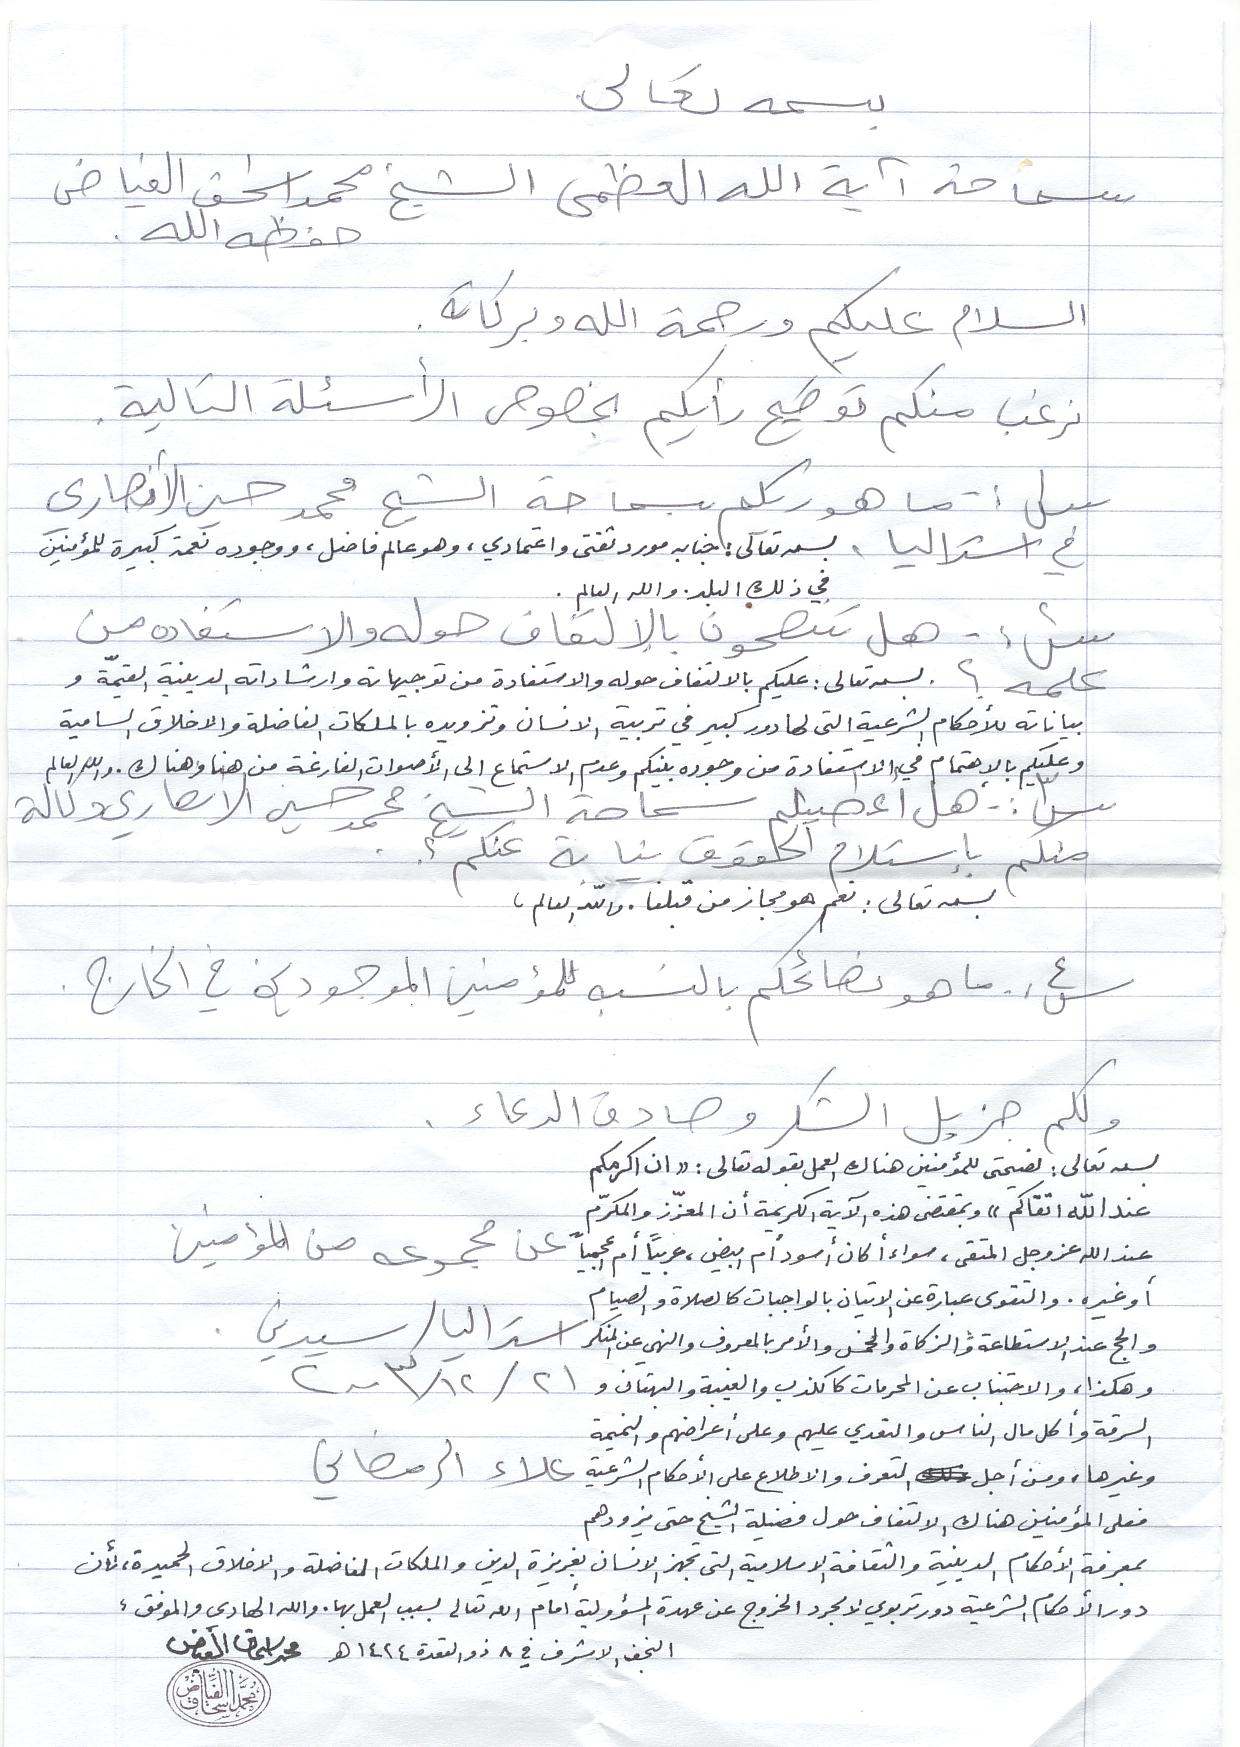 بسمه تعالى
سماحة آية الله العظمى الشيخ محمد اسحق الفياض
حفظه الله .
السلام عليكم ورحمة الله وبركاته .
نرغب منكم توضيح رأيكم بخصوص الأسئلة التالية .
س١ :- ما هو رأيكم بسماحة الشيخ محمد حسين الأنصاري
في استراليا . بسمه تعالى : جنابه مورد ثقتي واعتمادي ، وهو عالم فاضل ، ووجوده نعمة كبيرة للمؤمنين
في ذلك البلد . والله العالم .
س٢ :- هل تنصحون بالإلتفاف حوله والاستفاده من
علمه ؟ . بسمه تعالى : عليكم بالالتفاف حوله والاستفادة من توجيهاته وارشاداته الدينية القيّمة و
بياناته للأحكام الشرعية التى لها دور كبير في تربية الانسان وتزويده بالملكات الفاضلة والاخلاق السامية
وعليكم بالإهتمام في الاستفادة من وجوده بينكم وعدم الاستماع الى الأصوات الفارغة من هنا وهناك . والله العالم
س٣ :- هل أعطيتم سماحة الشيخ محمد حسين الانصاري وكالة
منكم بإستلام الحقوق نيابة عنكم ؟ .
بسمه تعالى : نعم هو مجاز من قبلنا . والله العالم
س٤ :- ما هو نصائحكم بالنسبه للمؤمنين الموجودين في الخارج .
ولكم جزيل الشكر وصادق الدعاء .
بسمه تعالى : نصيحتى للمؤمنين هناك العمل بقوله تعالى : « ان اكرمكم
عند الله اتقاكم » وبمقتضى هذه الآية الكريمة أن المعزّز والمكرّم
عند الله عز وجل المتقى ، سواء أكان أسود أم ابيض ، عربياً أم عجمياً عن مجموعه من المؤمنين
أو غيره . والتقوى عبارة عن الاتيان بالواجبات كالصلاة و الصيام
والحج عند الاستطاعة والزكاة والخمس والأمر بالمعروف والنهي عن المنكر استراليا / سيدني .
وهكذا ، والاجتناب عن المحرمات كالكذب والغيبة والبهتان و ٢١ / ١٢ / ٢٠٠٣
السرقة وأكل مال الناس والتعدي عليهم وعلى أعراضهم والنميمة
وغيرها ، ومن أجل التعرف والاطلاع على الأحكام الشرعية علاء الرمضاني
فعلى المؤمنين هناك الالتفاف حول فضيلة الشيخ حتى يزودهم
بمعرفة الأحكام الدينية والثقافة الاسلامية التى تجهز الانسان بغريزة الدين والملكات الفاضلة والاخلاق الحميدة ، لأن
دور الأحكام الشرعية دور تربوي لا مجرد الخروج عن عهدة المسؤولية أمام الله تعالى بسبب العمل بها . والله الهادى والموفق
النجف الاشرف في ٨ ذو القعدة ١٤٢٤ هـ محمد اسحاق الفياض
محمد اسحاق الفياض